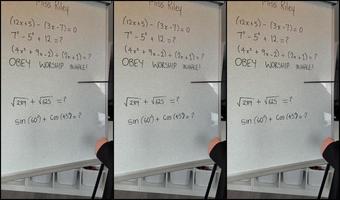 Miss Riley
(12x+5) - (3x-7)=0
+ 12 = ?
(4x² + 9x-2) + (9x+5) = ?
OBEY WORSHIP INHALE!
√289 + √625 = ?
sin(60°) + cos(45°) = ?
Miss Riley
(12x+5) - (3x-7)=0
+ 12 = ?
(4x² + 9x-2) + (9x+5) = ?
OBEY WORSHIP INHALE!
√289 + √625 = ?
sin(60°) + cos(45°) = ?
Miss Riley
(12x+5) - (3x-7)=0
+ 12 = ?
(4x² + 9x-2) + (9x+5) = ?
OBEY WORSHIP INHALE!
√289 + √625 = ?
sin(60°) + cos(45°) = ?